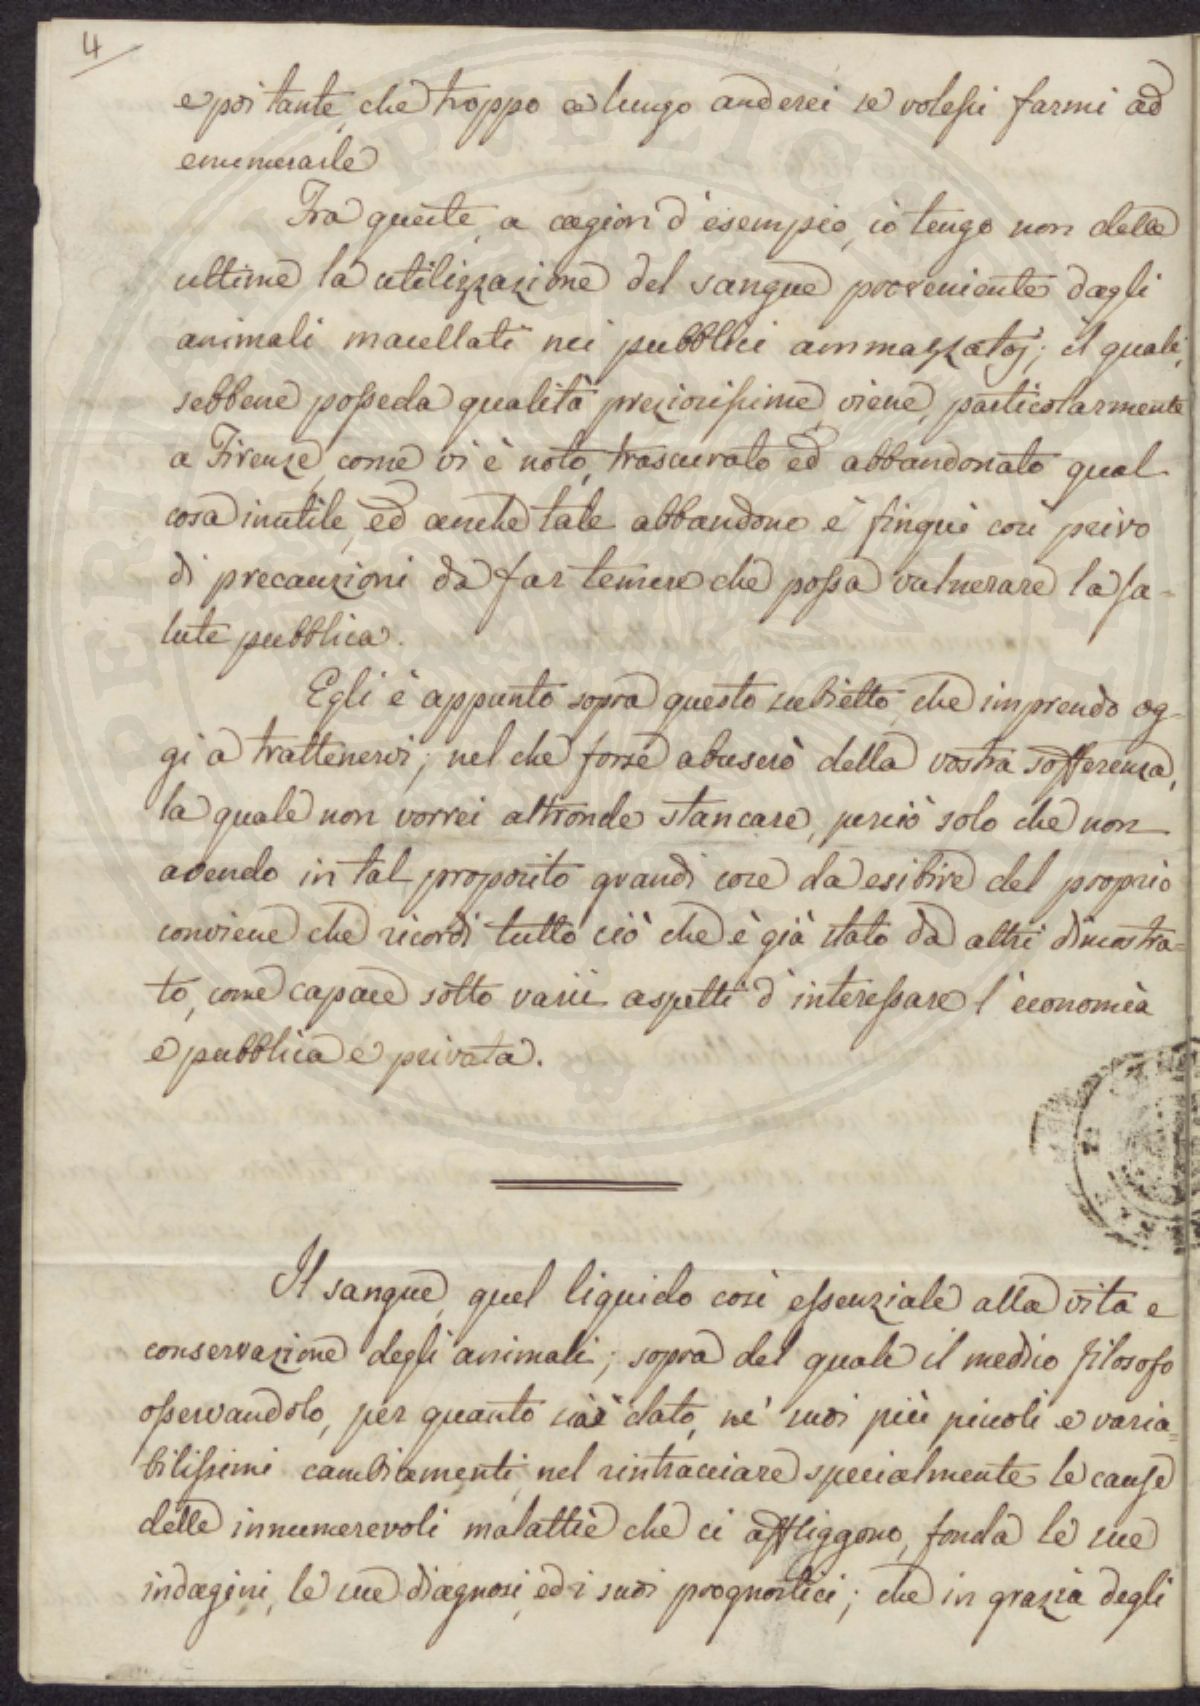 4
e poi tante, che troppo a lungo anderei se volessi farmi ad
enumerarle
Tra queste, a cagion d'esempio, io tengo non delle
ultime la utilizzazione del sangue proveniente dagli
animali macellati nei pubblici ammazzatoj; il quale,
sebbene posseda qualità preziosissime, viene, particolarmente
a Firenze, come vi è noto, trascurato ed abbandonato qual
cosa inutile, ed anche tale abbandono è finqui così privo
di precauzioni da far temere che possa vulnerare la sa-
lute pubblica.
Egli è appunto sopra questo subietto, che imprendo og-
gi a trattenervi; nel che forse abuserò della vostra sofferenza,
la quale non vorrei altronde stancare, perciò solo che non
avendo in tal proposito grandi cose da esibire del proprio
conviene che ricordi tutto ciò che è già stato da altri dimostra-
to, come capace sotto varii aspetti d'interessare l'economia
e pubblica e privata.
Il sangue, quel liquido così essenziale alla vita e
conservazione degli animali; sopra del quale il medico filosofo
osservandolo, per quanto gli è dato, ne' suoi più piccoli e varia-
bilissimi cambiamenti, nel rintracciare specialmente le cause
delle innumerevoli malattie che ci affliggono, fonda le sue
indagini, le sue diagnosi, ed i suoi prognostici; che in grazia degli